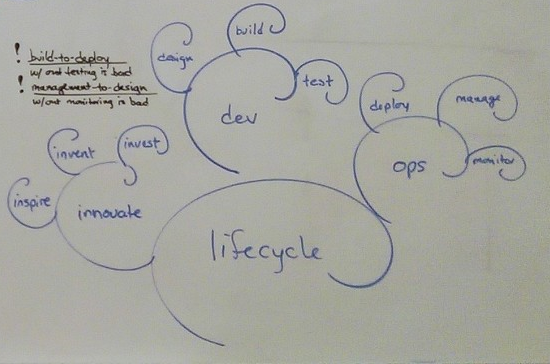 ! build-to-deploy
w/out testing is bad
! management-to-design
w/out monitoring is bad
design
build
test
dev
deploy
manage
monitor
ops
invent
invest
inspire
innovate
lifecycle